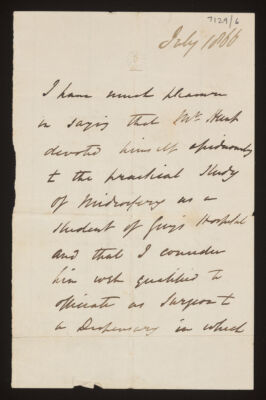 7129/6
July 1866
I have much pleasure
in saying that Mr.
devoted himself assiduously
to the practical study
of Midwifery as a
student of Guys Hospital
and that I consider
him well qualified to
officiate as Surgeon to
a Dispensary in which